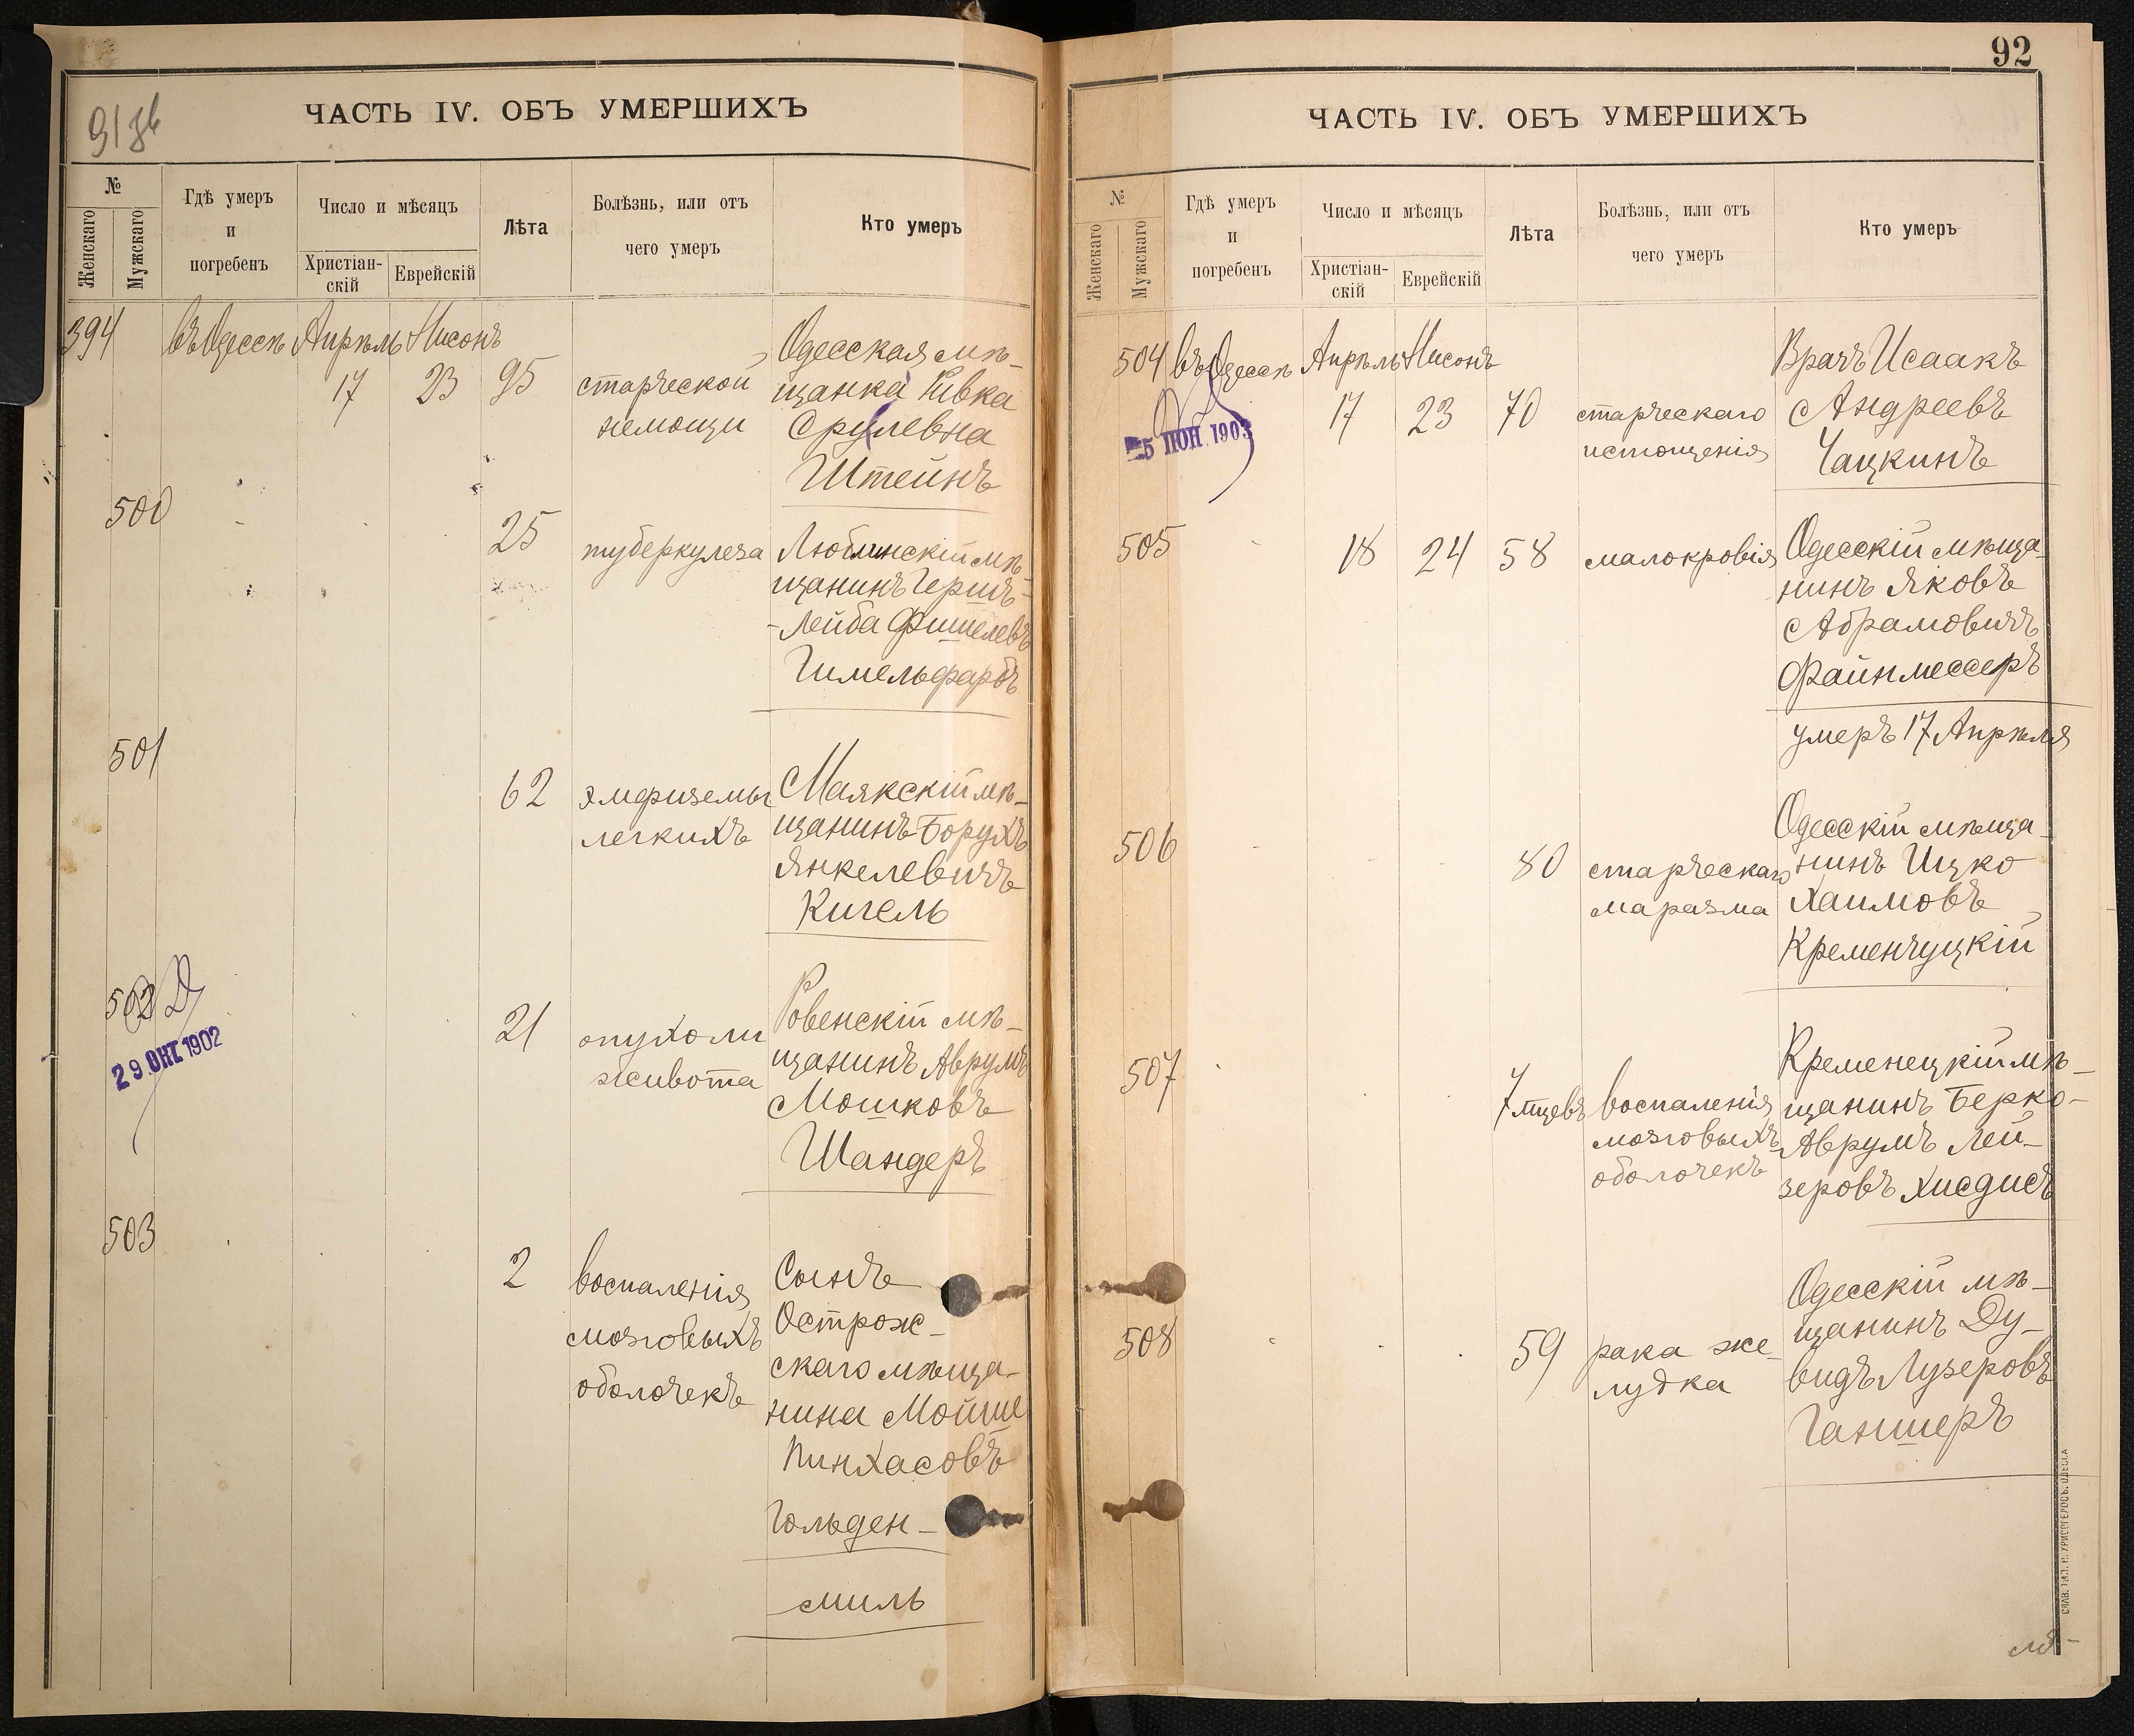 91 зв
ЧАСТЬ IV. ОБЪ УМЕРШИХЪ
№
Женскаго
Мужскаго
Гдѣ умеръ
и
погребенъ
Число и мѣсяцъ
Христіан-
скій
Еврейскій
Лѣта
Болѣзнь, или отъ
чего умеръ
Кто умеръ
394 въ Одессѣ Апрѣль Нисонъ
17 23 95 старческой
немощи
Одесская мѣ-
щанка Ривка
Срулевна
Штейнъ
500
25 туберкулеза
Люблинскій мѣ-
щанинъ Гершъ-
-Лейба Фишелевъ
Гимельфарбъ
501
62 эмфиземы
легкихъ
Маякскій мѣ-
щанинъ Борухъ
Янкелевичъ
Кигель
502
29 ОКТ 1902
21 опухоли
живота
Ровенскій мѣ-
щанинъ Аврумъ
Мошковъ
Шандеръ
503
2 воспаленія
мозговыхъ
оболочекъ
Сынъ
Острож-
скаго мѣща-
нина Мойше
Пинхасовъ
Гольден-
миль
92
ЧАСТЬ IV. ОБЪ УМЕРШИХЪ
№
Женскаго
Мужскаго
Гдѣ умеръ
и
погребенъ
Число и мѣсяцъ
Христіан-
скій
Еврейскій
Лѣта
Болѣзнь, или отъ
чего умеръ
Кто умеръ
504 въ Одессѣ Апрѣль Нисонъ
5 ІЮН. 1903
17 23 70 старческаго
истощенія
Врачъ Исаакъ
Андреевъ
Чацкинъ
505
18 24 58 малокровія
Одесскій мѣща-
нинъ Яковъ
Абрамовичъ
Файнмессеръ
умеръ 17 Апрѣля
506
80 старческаго
маразма
Одесскій мѣща-
нинъ Ицко
Хаимовъ
Кременчуцкій
507
7 мцевъ воспаленія
мозговыхъ
оболочекъ
Кременецкій мѣ-
щанинъ Берко-
Аврумъ Лей-
зеровъ Хисдисъ
508
59 рака же-
лудка
Одесскій мѣ-
щанинъ Ду-
видъ Лузеровъ
Ганшеръ